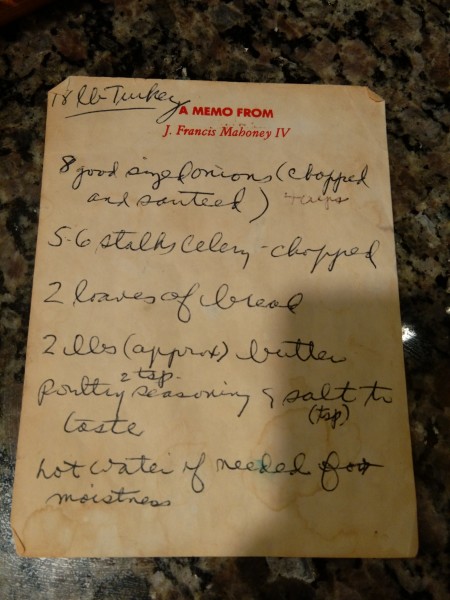 18 lb Turkey
A MEMO FROM
J. Francis Mahoney IV
8 good sized onions (chopped
and sauteed)
5-6 stalks celery - chopped
2 loaves of bread
2 lbs (approx) butter
2 tsp.
Poultry seasoning & salt to
(tsp)
taste
hot water if needed for
moistness